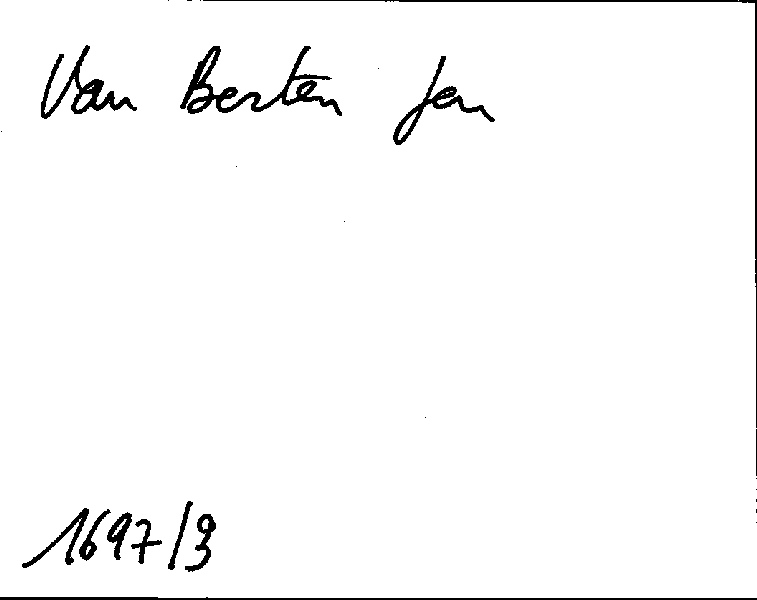 Van Berten Jen
1697/9